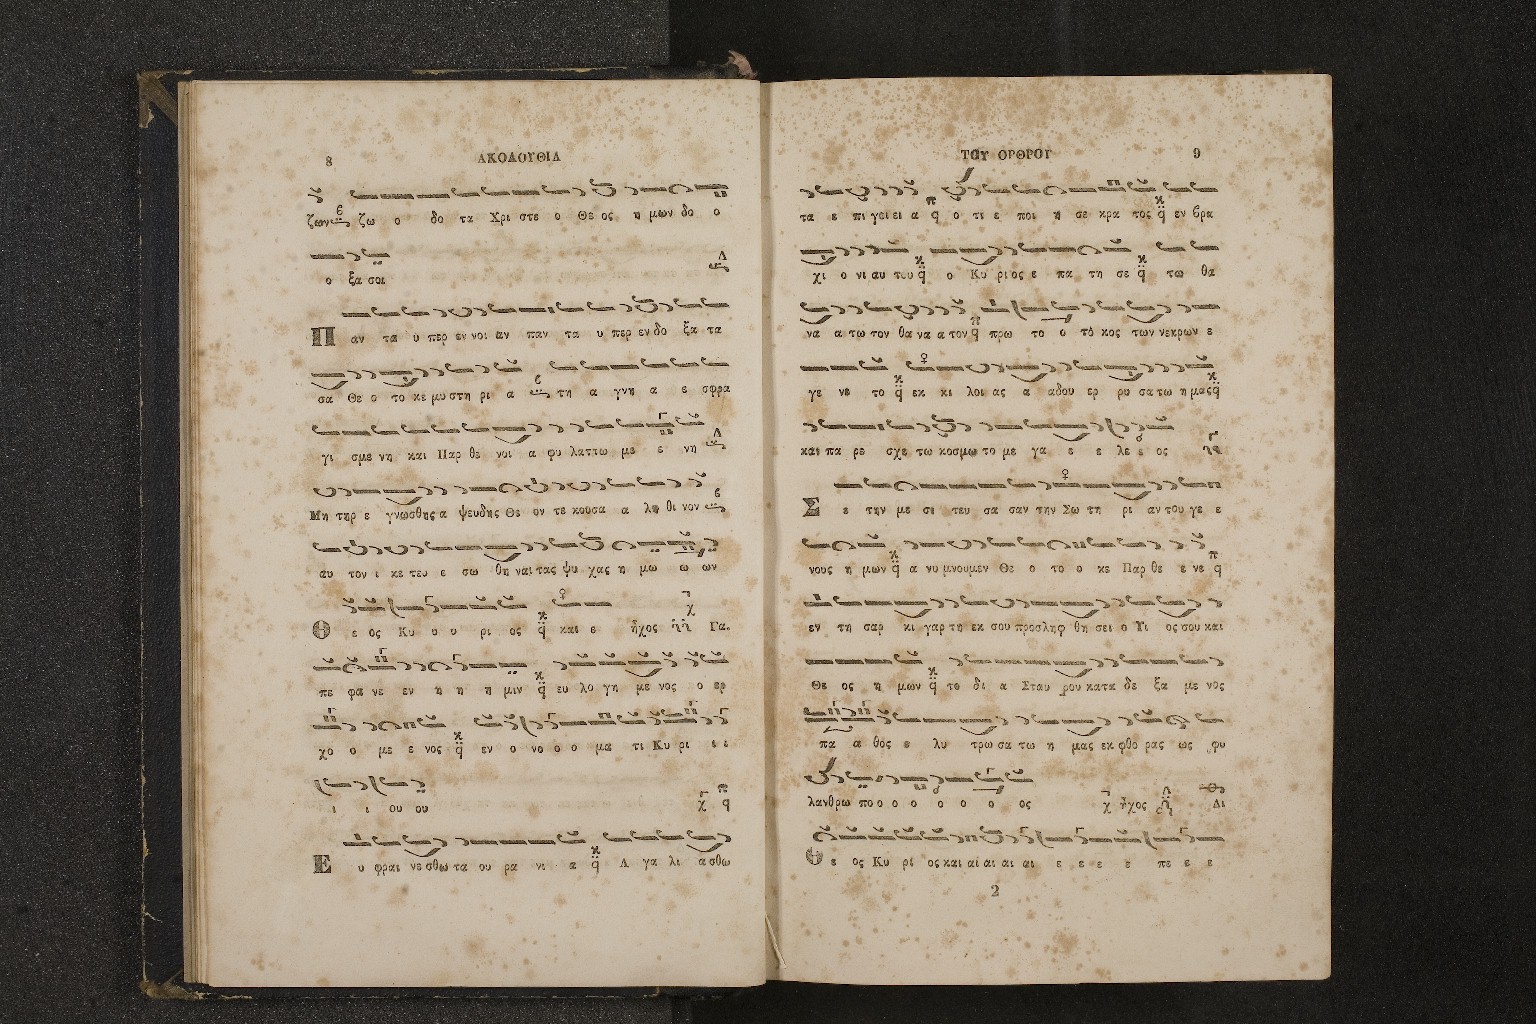 8 ΑΚΟΛΟΥΘΙΑ
ζων ζω ο δο τα Χρι στε ο Θε ος η μων δο ο
ο ξα σοι
Π αν τα υ περ εν νοι αν παν τα υ περ εν δο ξα τα
σα Θε ο το κε μυ στη ρι α τη α γνη α ε σφρα
γι σμε νη και Παρ θε νοι α φυ λαττω με ε νη
Μη τηρ ε γνωσθης α ψευδης Θε ον τε κουσα α λη θι νον
αυ τον ι κε τευ ε σω θη ναι τας ψυ χας η μω ω ων
Θ ε ος Κυ υ υ ρι ος και ε ἦχος Γα.
πε φα νε εν η η η μιν ευ λο γη με νος ο ερ
χο ο με ε νος εν ο νο ο ο μα τι Κυ ρι ι ι
ι ι ου ου
Ε υ φραι νε σθω τα ου ρα νι α Α γα λι α σθω
ΤΟΥ ΟΡΘΡΟΥ 9
τα ε πι γει ει α ο τι ε ποι η σε κρα τος εν βρα
χι ο νι αυ του ο Κυ ρι ος ε πα τη σε τω θα
να α τω τον θα να α τον πρω το ο τό κος των νεκρων ε
γε νε το εκ κι λοι ας α αδου ερ ρυ σα τω η μας
και πα ρε σχε τω κοσμω το με γα ε ε λε ε ος
Σ ε την με σι τευ σα σαν την Σω τη ρι αν του γε ε
νους η μων α νυ μνουμεν Θε ο το ο κε Παρ θε ε νε
εν τη σαρ κι γαρ τη εκ σου προσληφ θη σει ο Υι ος σου και
Θε ος η μων το δι α Σταυ ρου κατα δε ξα με νος
πα α θος ε λυ τρω σα τω η μας εκ φθο ρας ως φυ
λανθρω πο ο ο ο ο ο ο ο ος ἦχος Δι
Θ ε ος Κυ ρι ος και αι αι αι αι ε ε ε ε πε ε ε
2